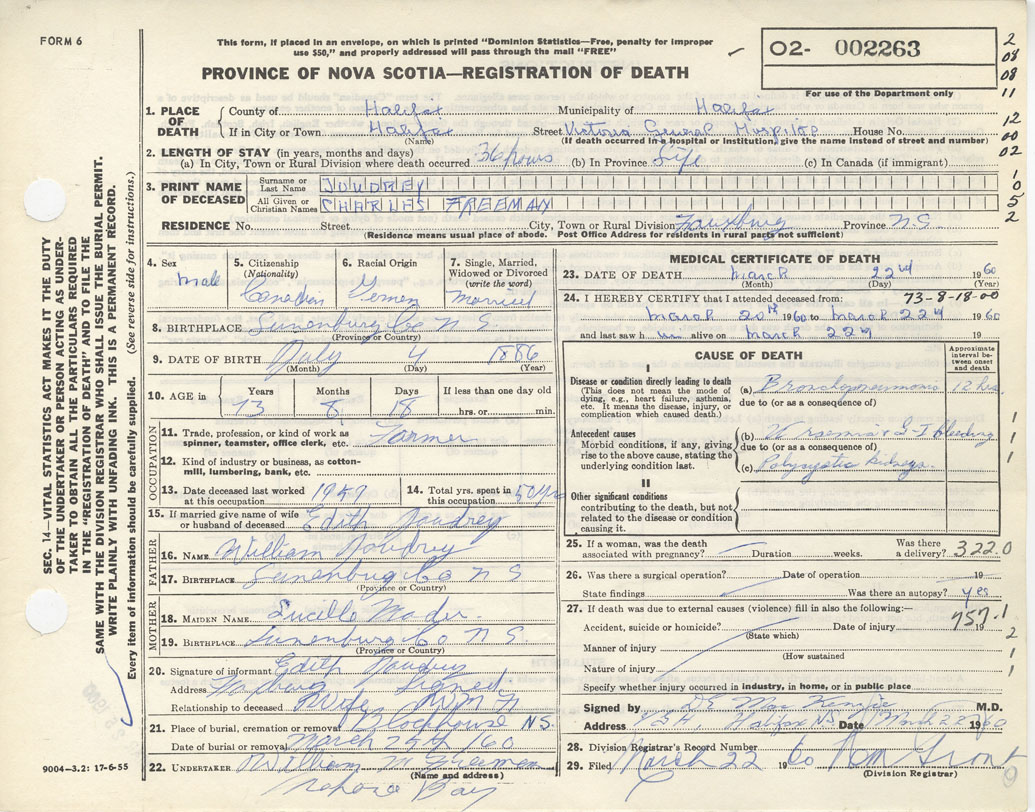 FORM 6
This form, if placed in an envelope, on which is printed "Dominion Statistics—Free, penalty for improper
use $50," and properly addressed will pass through the mail "FREE"
O2- 002263
For use of the Department only
PROVINCE OF NOVA SCOTIA—REGISTRATION OF DEATH
2 08 08 11 12 00 02 10 5 2
1. PLACE OF DEATH
County of Halifax Municipality of Halifax
If in City or Town Halifax Street Victoria General Hospital House No.
(Name) (If death occurred in a hospital or institution, give the name instead of street and number)
2. LENGTH OF STAY (in years, months and days)
(a) In City, Town or Rural Division where death occurred 36 hours (b) In Province Life (c) In Canada (if immigrant)
3. PRINT NAME OF DECEASED
Surname or Last Name JOUDREY
All Given or Christian Names CHARLES FREEMAN
RESIDENCE No. Street City, Town or Rural Division Province N.S
(Residence means usual place of abode. Post Office Address for residents in rural parts not sufficient)
4. Sex male
5. Citizenship (Nationality) Canadian
6. Racial Origin German
7. Single, Married, Widowed or Divorced (write the word) Married
8. BIRTHPLACE Lunenburg Co N S
(Province or Country)
9. DATE OF BIRTH July 4 1886
(Month) (Day) (Year)
10. AGE in Years 73 Months 8 Days 18 If less than one day old
hrs. or min.
OCCUPATION
11. Trade, profession, or kind of work as spinner, teamster, office clerk, etc. Farmer
12. Kind of industry or business, as cotton-mill, lumbering, bank, etc.
13. Date deceased last worked at this occupation 14. Total yrs. spent in this occupation 50 yrs
15. If married give name of wife or husband of deceased Edith Joudrey
FATHER
16. NAME William Joudrey
17. BIRTHPLACE Lunenburg Co N S
(Province or Country)
MOTHER
18. MAIDEN NAME Lucille Mader
19. BIRTHPLACE Lunenburg Co N S
(Province or Country)
20. Signature of informant Edith Joudrey
Address Signed
Relationship to deceased Wife
21. Place of burial, cremation or removal Blockhouse N.S.
Date of burial or removal March 25th/60
22. UNDERTAKER William M Freeman
(Name and address)
Mahone Bay
MEDICAL CERTIFICATE OF DEATH
23. DATE OF DEATH March 22nd 1960
(Month) (Day) (Year)
24. I HEREBY CERTIFY that I attended deceased from: 73-8-18-00
March 20th 1960 to March 22nd 1960
and last saw him alive on March 22nd 19
CAUSE OF DEATH
Approximate interval between onset and death
I
Disease or condition directly leading to death
(This does not mean the mode of dying, e.g., heart failure, asthenia, etc. It means the disease, injury, or complication which caused death.)
(a) Bronchopneumonia 12 hrs
due to (or as a consequence of)
Antecedent causes
Morbid conditions, if any, giving rise to the above cause, stating the underlying condition last.
(b) Uraemia & G-I bleeding
due to (or as a consequence of)
(c) Polycystic kidneys
II
Other significant conditions
contributing to the death, but not related to the disease or condition causing it.
1 1 1
25. If a woman, was the death associated with pregnancy? Duration weeks. Was there a delivery? 322.0
26. Was there a surgical operation? Date of operation 19
State findings Was there an autopsy? yes
27. If death was due to external causes (violence) fill in also the following:—
Accident, suicide or homicide? Date of injury 19 757.1
(State which)
Manner of injury
(How sustained
Nature of injury
2 1 1
Specify whether injury occurred in industry, in home, or in public place
Signed by MacKenzie M.D.
Address V G H, Halifax NS Date March 22 1960
28. Division Registrar's Record Number
29. Filed March 22 1960
(Division Registrar)
9
SEC. 14—VITAL STATISTICS ACT MAKES IT THE DUTY
OF THE UNDERTAKER OR PERSON ACTING AS UNDER-
TAKER TO OBTAIN ALL THE PARTICULARS REQUIRED
IN THE "REGISTRATION OF DEATH" AND TO FILE THE
SAME WITH THE DIVISION REGISTRAR WHO SHALL ISSUE THE BURIAL PERMIT.
WRITE PLAINLY WITH UNFADING INK. THIS IS A PERMANENT RECORD.
Every item of information should be carefully supplied. (See reverse side for instructions.)
9004-3.2: 17-6-55